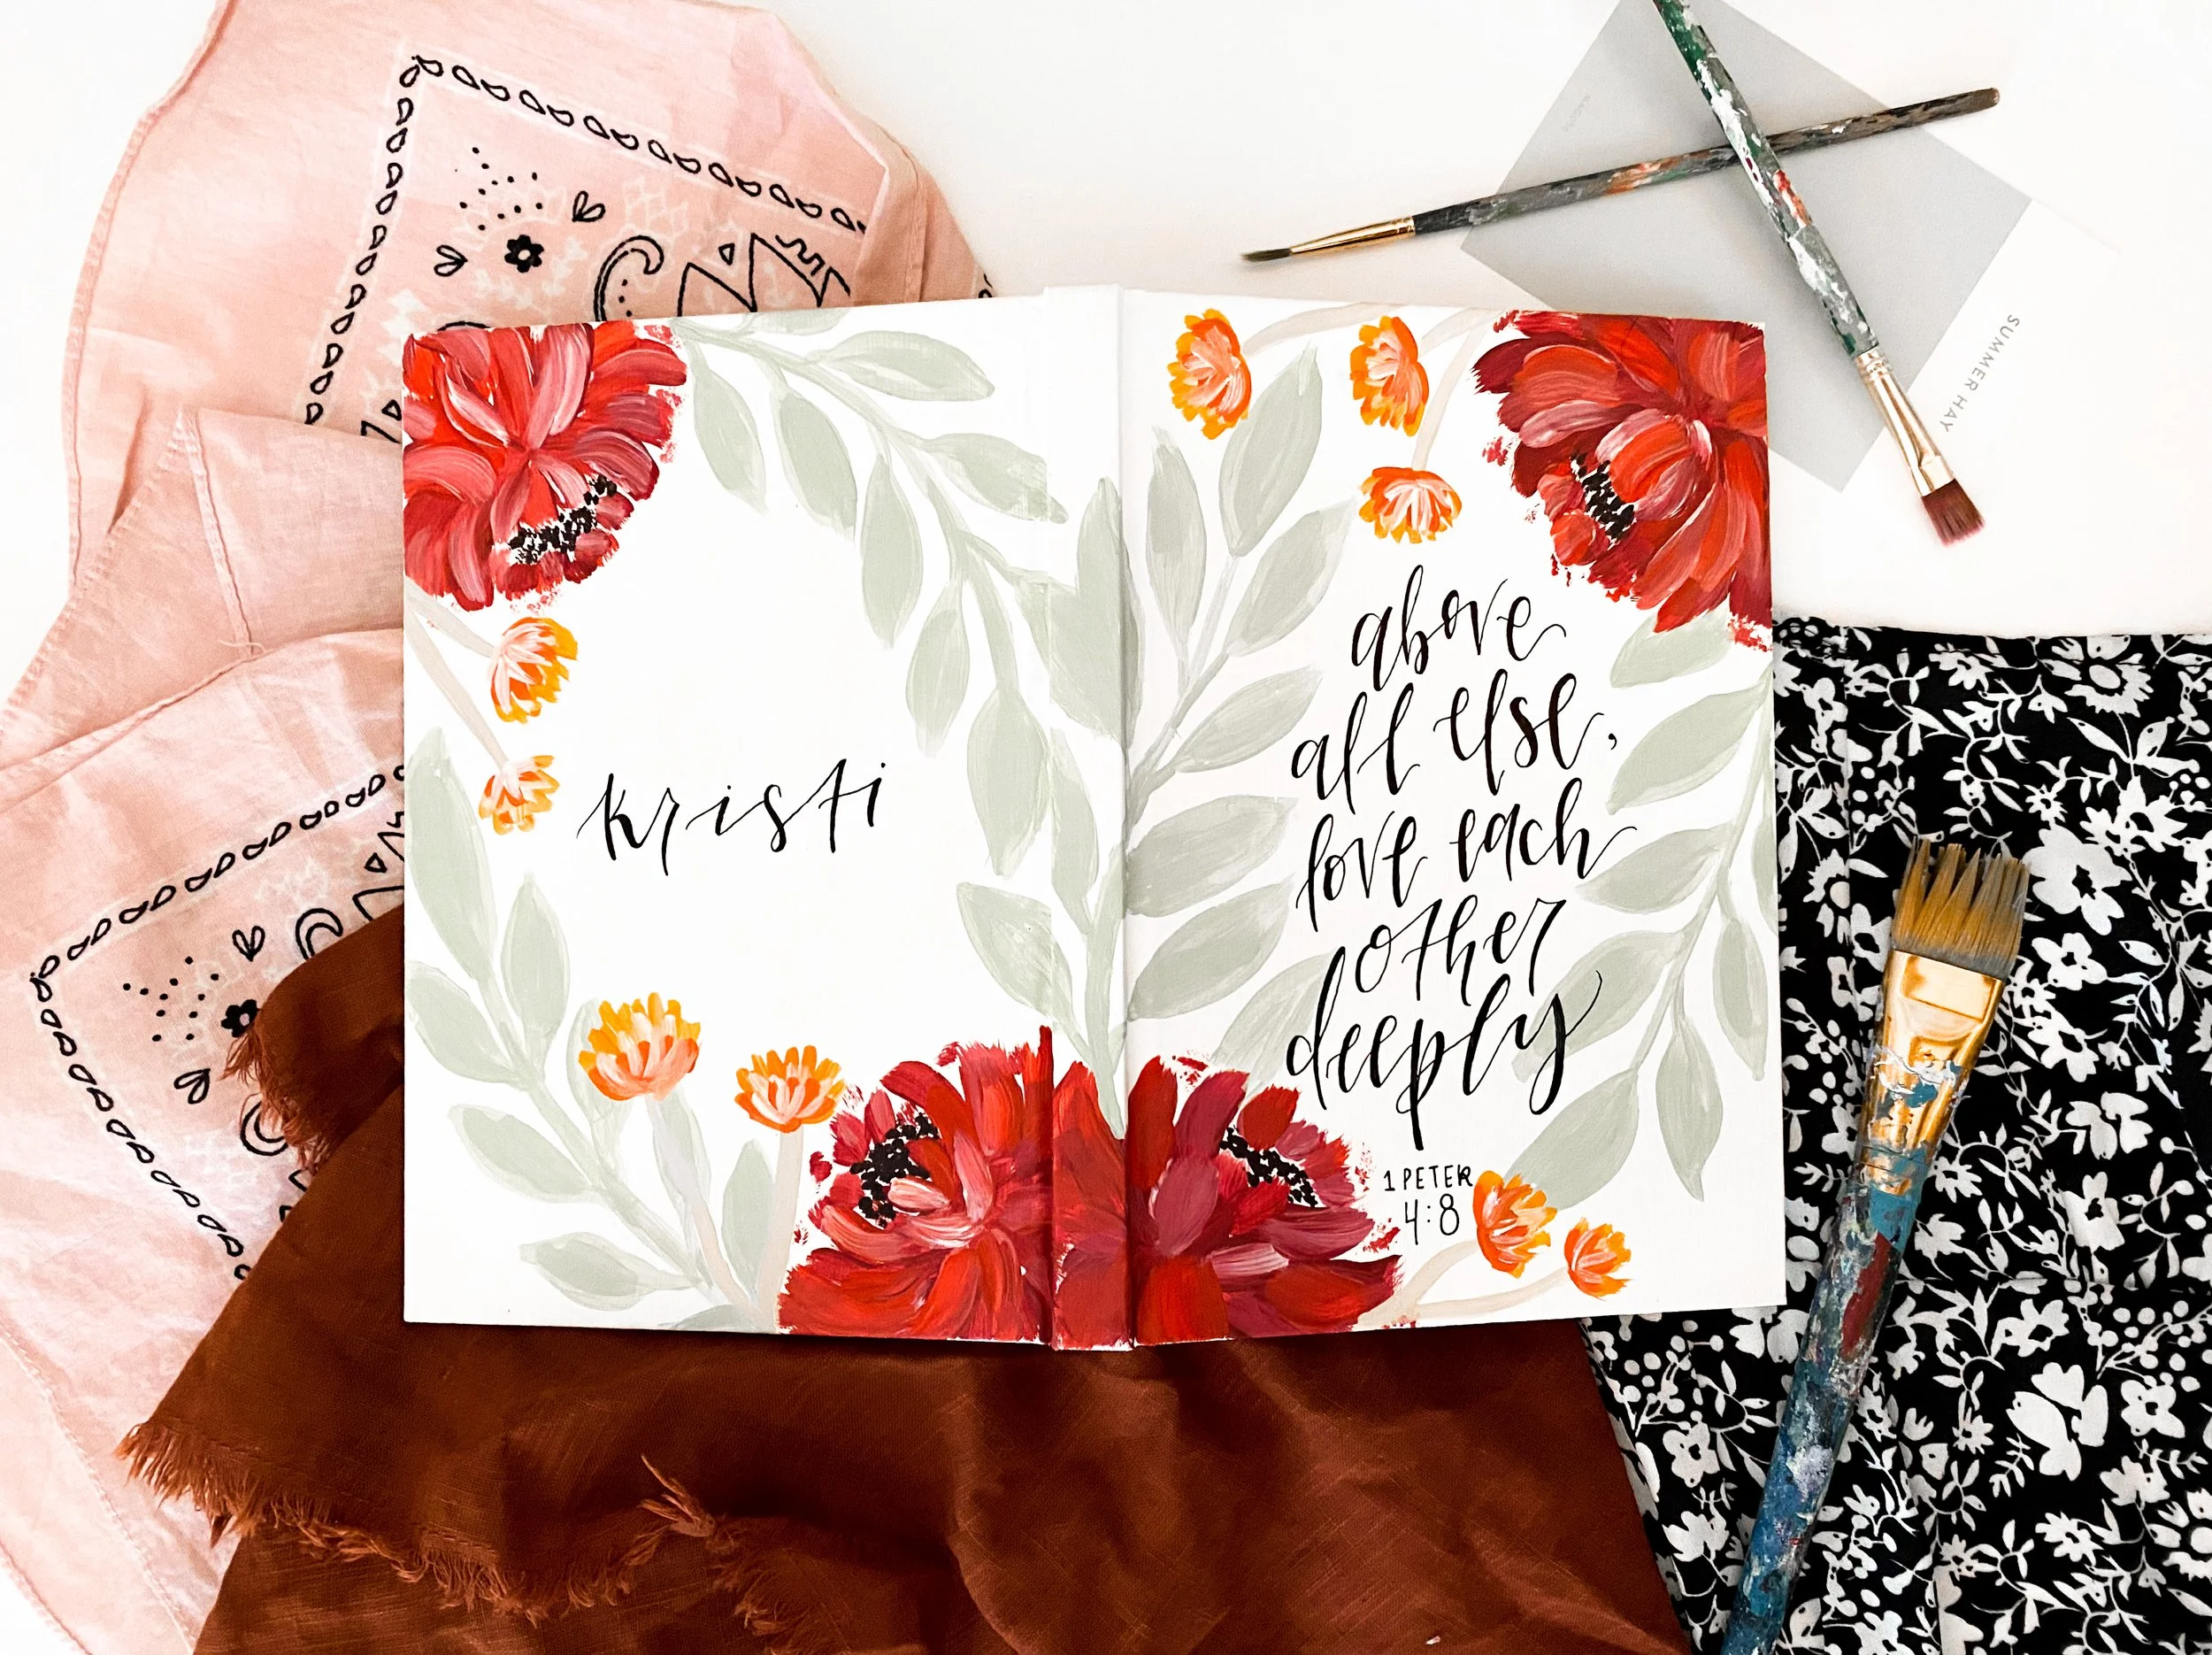 kristi
above
all else,
love each
other
deeply
1 PETER
4:8
SUMMER HAY